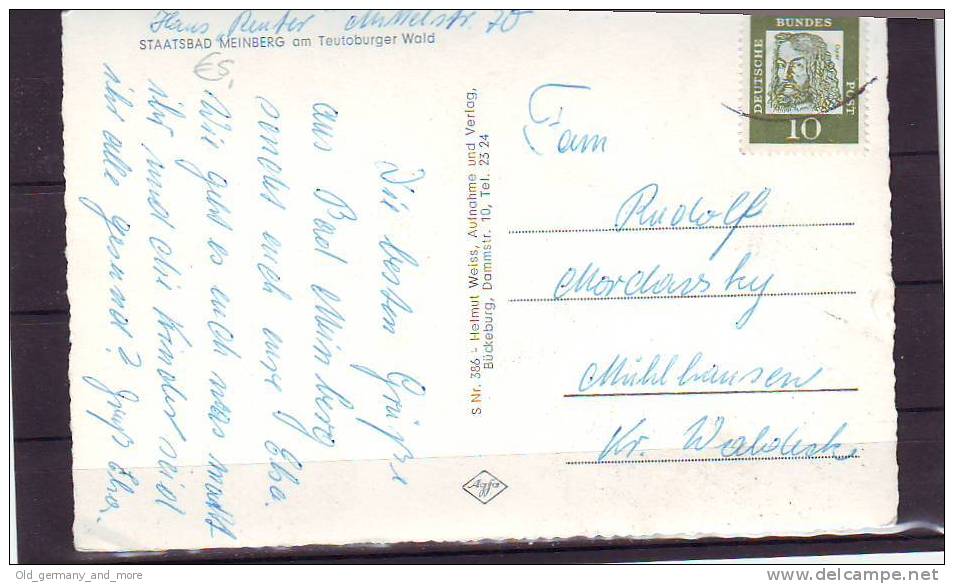 Haus "Reuter" Mittelstr. 70
STAATSBAD MEINBERG am Teutoburger Wald
Die besten Grüße
aus Bad Meinberg
sendet euch eure Elsa.
Wie geht es euch was macht
ihr und die Kinder seid
ihr alle gesund? Gruß Elsa.
S Nr. 386 - Helmut Weiss, Aufnahme und Verlag,
Bückeburg, Dammstr. 10, Tel. 23 24
Agfa
DEUTSCHE
BUNDES
POST
10
Fam
Rudolf
Mordavsky
Mühlhausen
Kr. Waldeck
Old_germany_and_more
delcampe.net